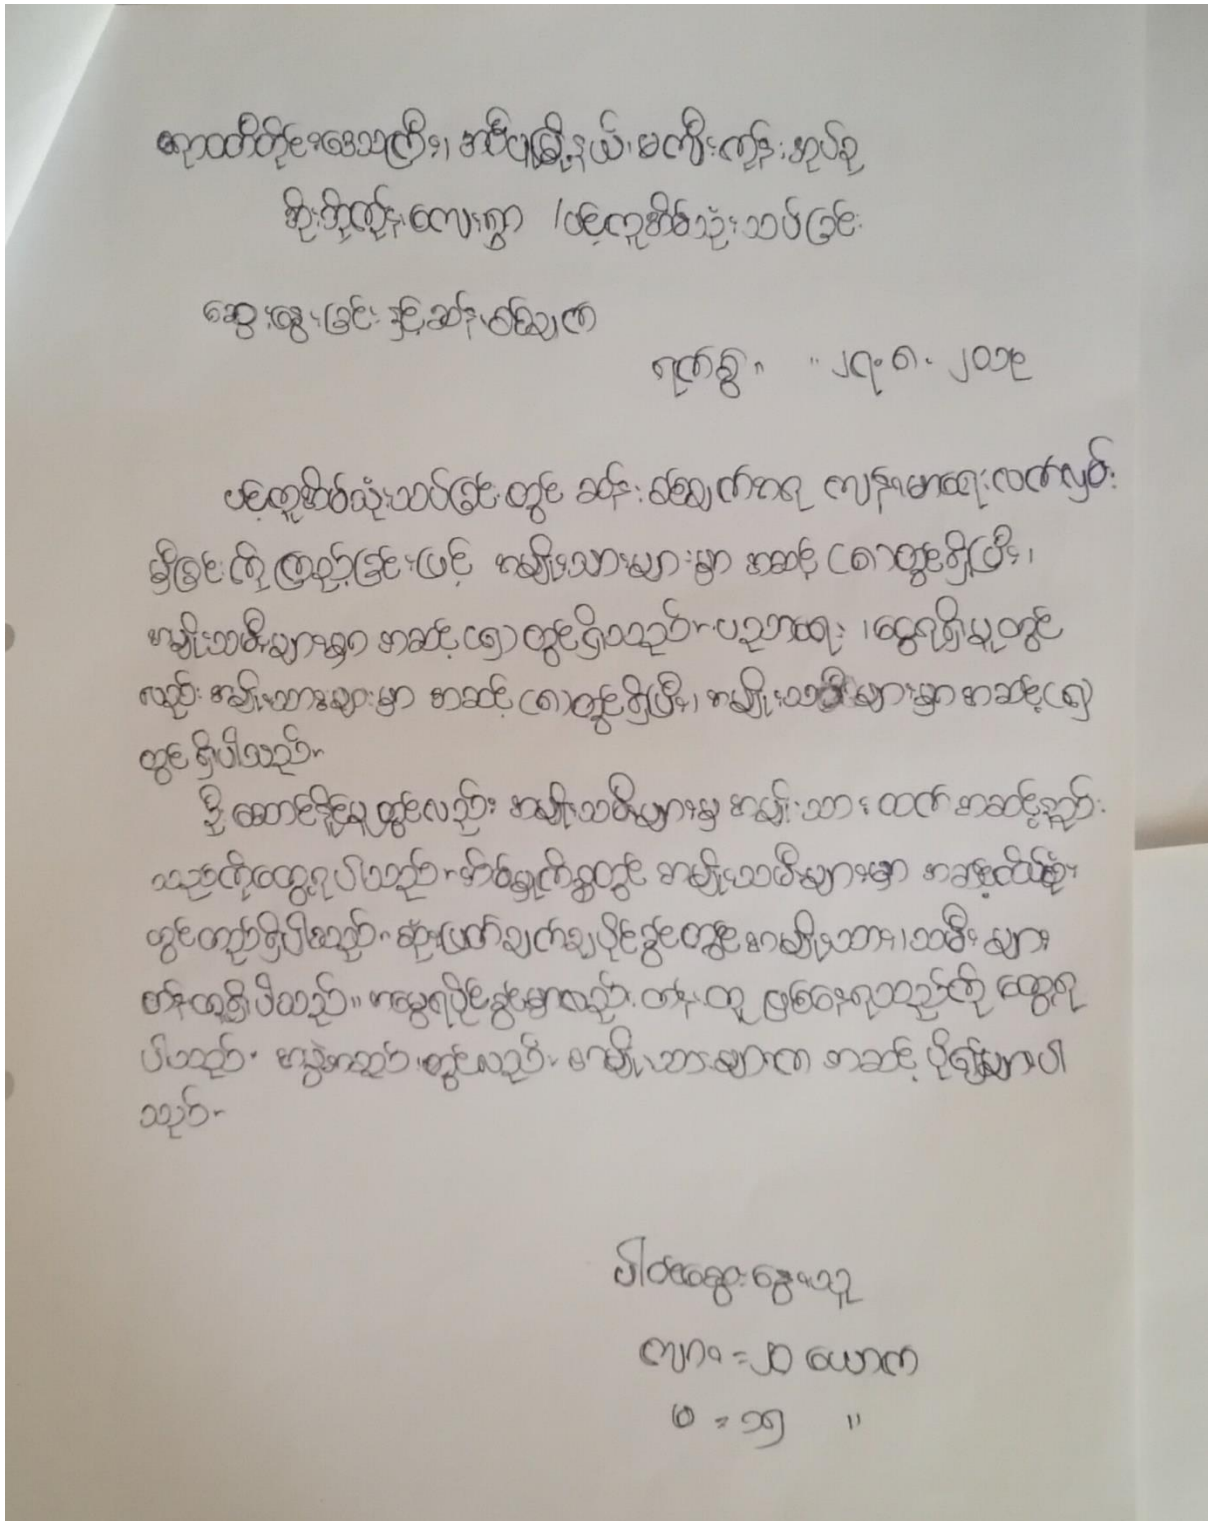 ဧရာဝတီတိုင်းဒေသကြီး၊ အိမ်မဲမြို့နယ်၊ မကျီးကုန်းအုပ်စု
အိုးဘိုကုန်းကျေးရွာ /ပင့်ကူအိမ်သုံးသပ်ခြင်း
ဆွေးနွေးခြင်း နှင့်ဆန်းစစ်ချက်
ရက်စွဲ။ ။ ၂၇.၈. ၂၀၁၉
ပင့်ကူအိမ်သုံးသပ်ခြင်းတွင် ဆန်းစစ်ချက်အရ ကျန်းမာရေးလက်လှမ်း
မှီခြင်းကို ကြည့်ခြင်းဖြင့် အမျိုးသားများမှာ အဆင့် (၈)တွင်ရှိပြီး၊
အမျိုးသမီးများမှာ အဆင့်(၅)တွင်ရှိသည်။ ပညာရေး ၊ငွေရရှိမှုတွင်
လည်း အမျိုးသားများမှာ အဆင့်(၈)တွင်ရှိပြီး၊ အမျိုးသမီးများမှာအဆင့်(၅)
တွင်ရှိပါသည်။
ဦးဆောင်နိုင်မှုတွင်လည်း အမျိုးသမီးများမှ အမျိုးသားထက် အဆင့်နည်း
သည်ကိုတွေ့ရပါသည်။ အိမ်ရှုကိစ္စတွင် အမျိုးသမီးများမှာ အဆင့်ထိပ်ဆုံး
တွင်တည်ရှိပါသည်။ ဆုံးဖြတ်ချက်ချပိုင်ခွင့်တွင်အမျိုးသား၊သမီး များ
တန်းတူရှိပါသည်။ အမွေရပိုင်ခွင့်မှာလည်း တန်းတူ ဖြစ်နေရသည်ကို တွေ့ရ
ပါသည်။ အဖွဲ့အစည်းတွင်လည်း အမျိုးသားများက အဆင့် ပို၍များပါ
သည်။
ပါဝင်ဆွေးနွေးသူ
ကျား = ၂၀ ယောက်
မ = ၁၅ "